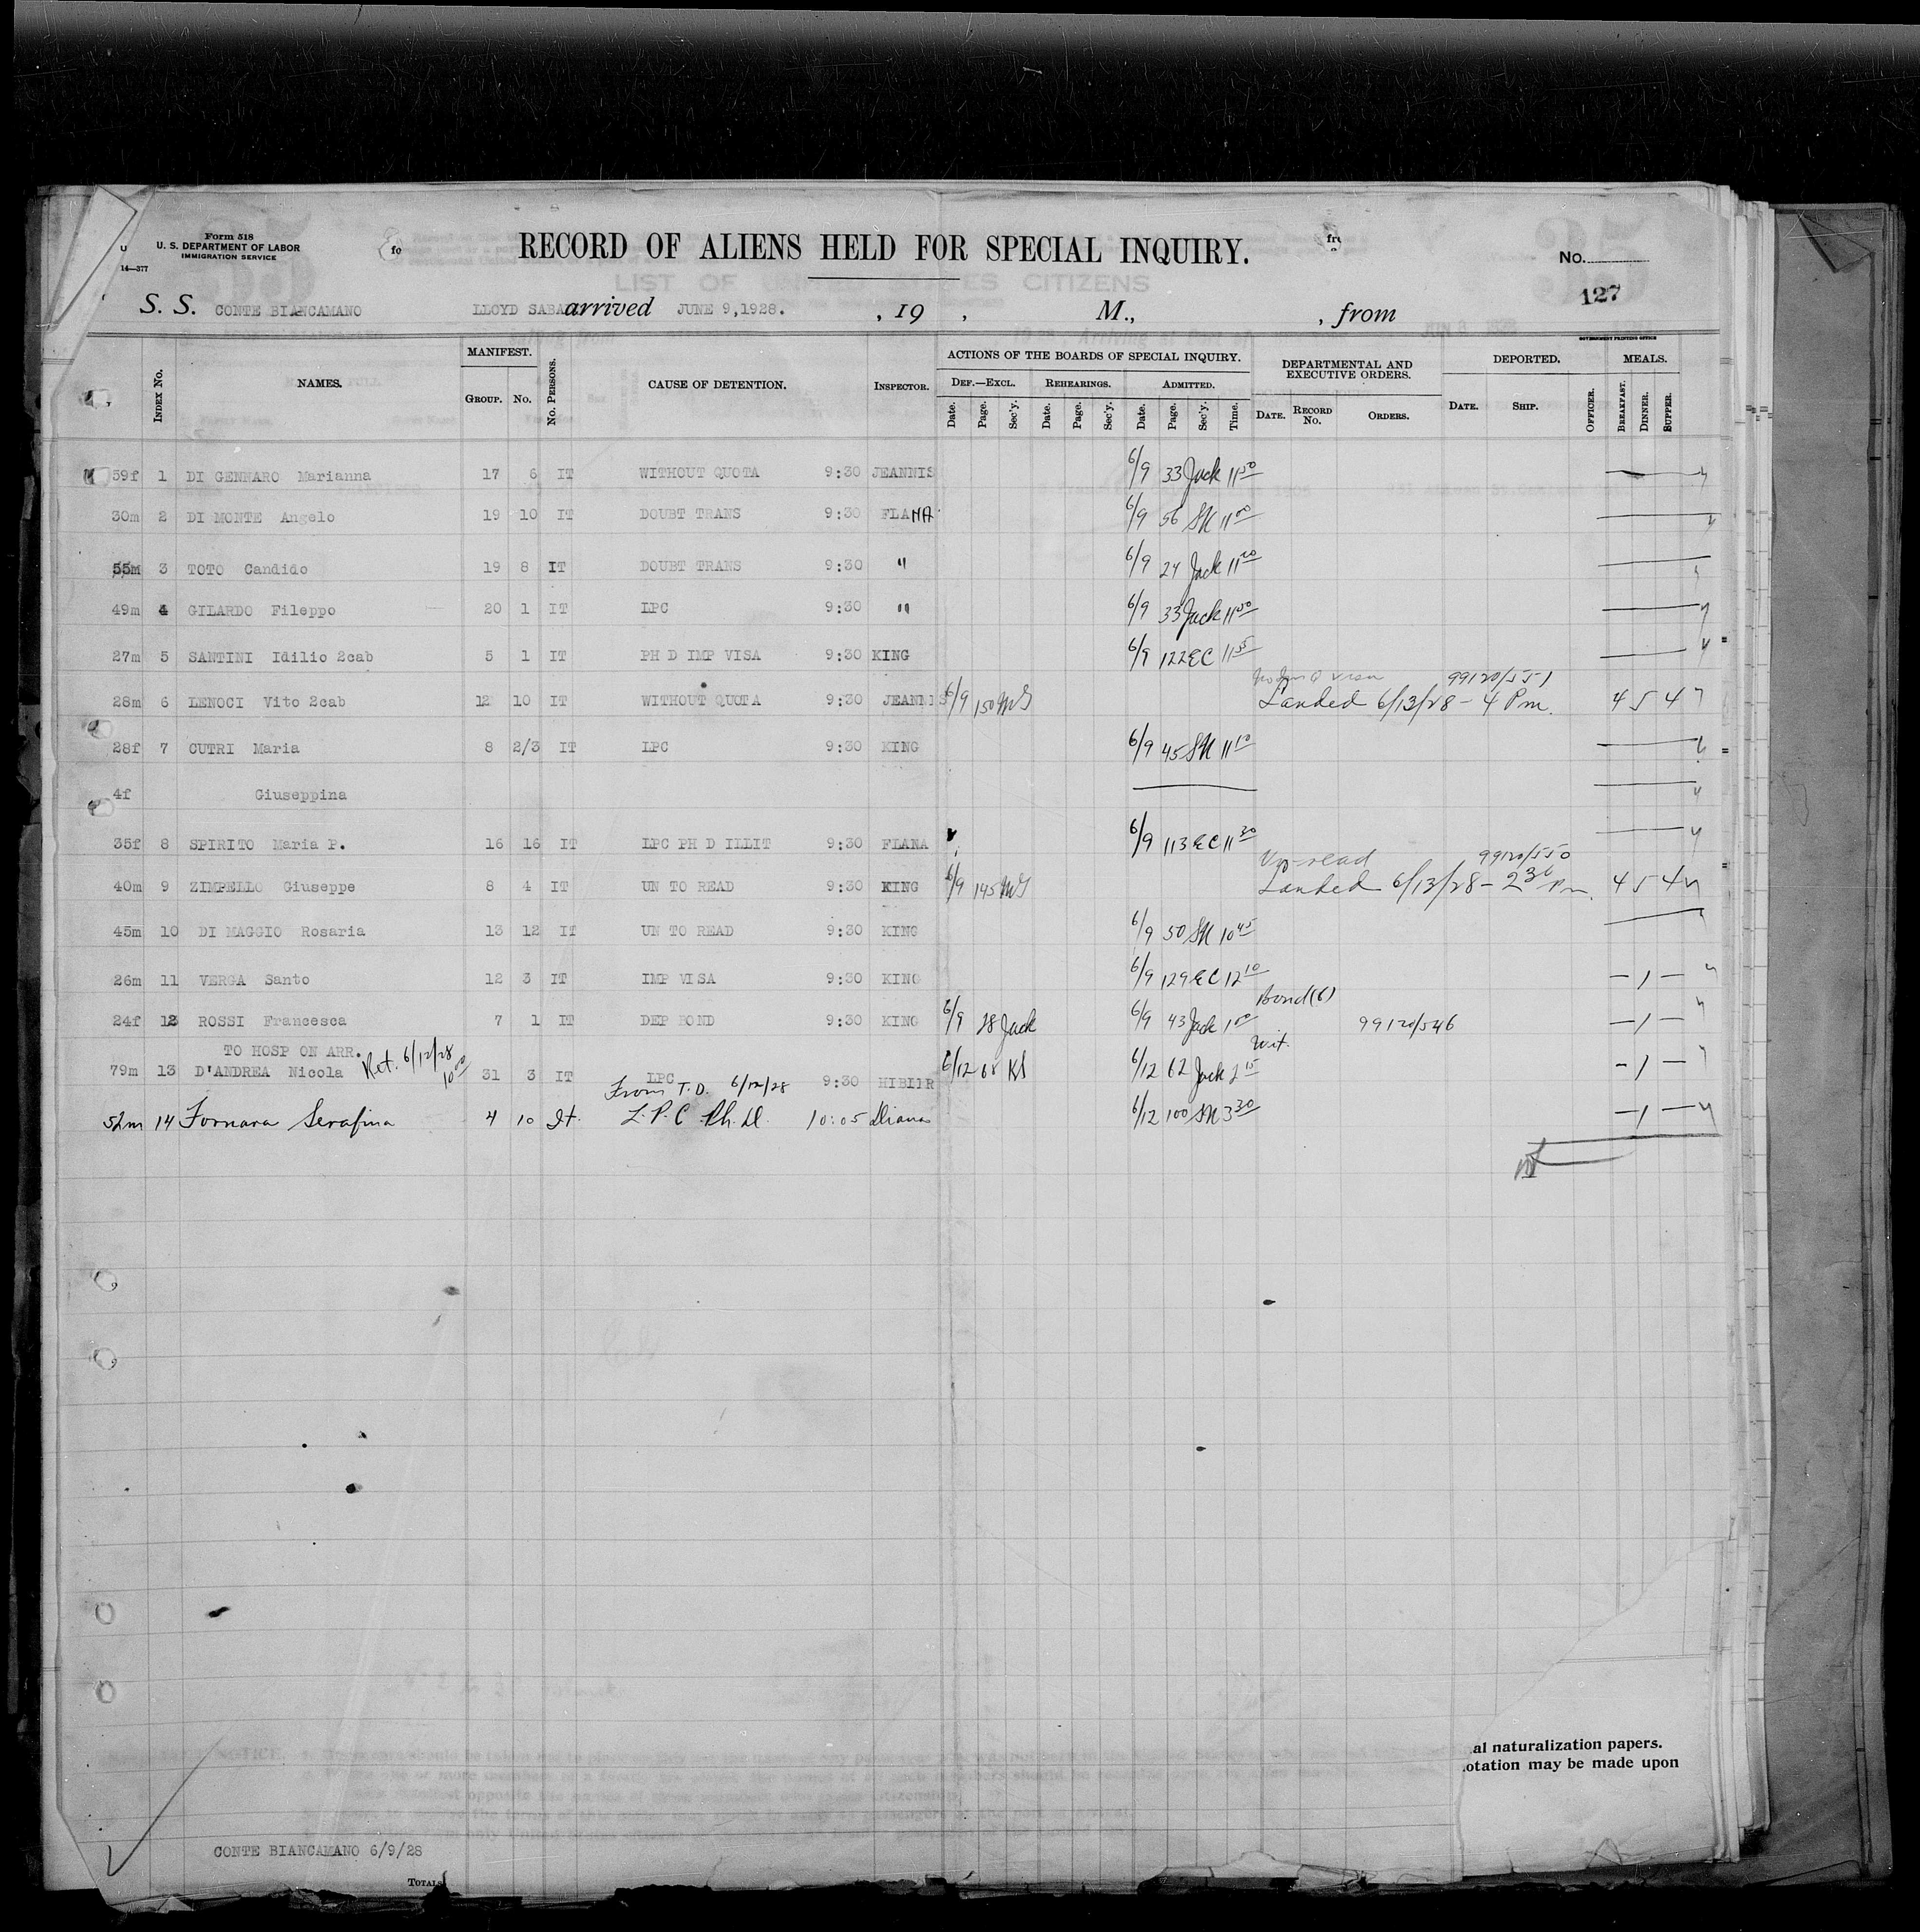 Form 518
U. S. DEPARTMENT OF LABOR
IMMIGRATION SERVICE
14—377
RECORD OF ALIENS HELD FOR SPECIAL INQUIRY.
No.
127
LIST OF UNITED STATES CITIZENS
S. S. CONTE BIANCAMANO LLOYD SABA arrived JUNE 9,1928. , 19 , M., , from
GOVERNMENT PRINTING OFFICE
INDEX No. NAMES. MANIFEST. GROUP. No. No. PERSONS. CAUSE OF DETENTION. INSPECTOR. ACTIONS OF THE BOARDS OF SPECIAL INQUIRY. DEPARTMENTAL AND EXECUTIVE ORDERS. DEPORTED. MEALS.
DEF.—EXCL. REHEARINGS. ADMITTED.
Date. Page. Sec'y. Date. Page. Sec'y. Date. Page. Sec'y. Time. DATE. RECORD No. ORDERS. DATE. SHIP. OFFICER. BREAKFAST. DINNER. SUPPER.
59f 1 DI GENNARO Marianna 17 6 IT WITHOUT QUOTA 9:30 JEANNIS 6/9 33 Jack 11 50
30m 2 DI MONTE Angelo 19 10 IT DOUBT TRANS 9:30 FLANA 6/9 56 SN 11 00
55m 3 TOTO Candido 19 8 IT DOUBT TRANS 9:30 " 6/9 24 Jack 11 20
49m 4 GILARDO Fileppo 20 1 IT LPC 9:30 " 6/9 33 Jack 11 50
27m 5 SANTINI Idilio 2cab 5 1 IT PH D IMP VISA 9:30 KING 6/9 122 EC 11 55
99120/551
28m 6 LENOCI Vito 2cab 12 10 IT WITHOUT QUOTA 9:30 JEANNIS 6/9 150 MG Landed 6/13/28 - 4 Pm. 4 5 4
28f 7 CUTRI Maria 8 2/3 IT LPC 9:30 KING 6/9 45 SN 11 10
4f Giuseppina
35f 8 SPIRITO Maria P. 16 16 IT LPC PH D ILLIT 9:30 FLANA 6/9 113 EC 11 30
99120/550
40m 9 ZIMPELLO Giuseppe 8 4 IT UN TO READ 9:30 KING 6/9 145 MG Landed 6/13/28 - 2 30 Pm. 4 5 4
45m 10 DI MAGGIO Rosaria 13 12 IT UN TO READ 9:30 KING 6/9 50 SN 10 45
26m 11 VERGA Santo 12 3 IT IMP VISA 9:30 KING 6/9 129 EC 12 10 — 1 —
Bond(6)
24f 12 ROSSI Francesca 7 1 IT DEP BOND 9:30 KING 6/9 28 Jack 6/9 43 Jack 1 00 99120/546 — 1 —
TO HOSP ON ARR. Ret. 6/12/28 10 00
79m 13 D'ANDREA Nicola 31 3 IT LPC 9:30 6/12 68 6/12 62 Jack 2 15 — 1 —
From T.D. 6/12/28
52m 14 Fornara Serafina 4 10 It. L.P.C Ph.D. 10:05 6/12 100 SN 3 30 — 1 —
al naturalization papers.
otation may be made upon
CONTE BIANCAMANO 6/9/28
TOTALS